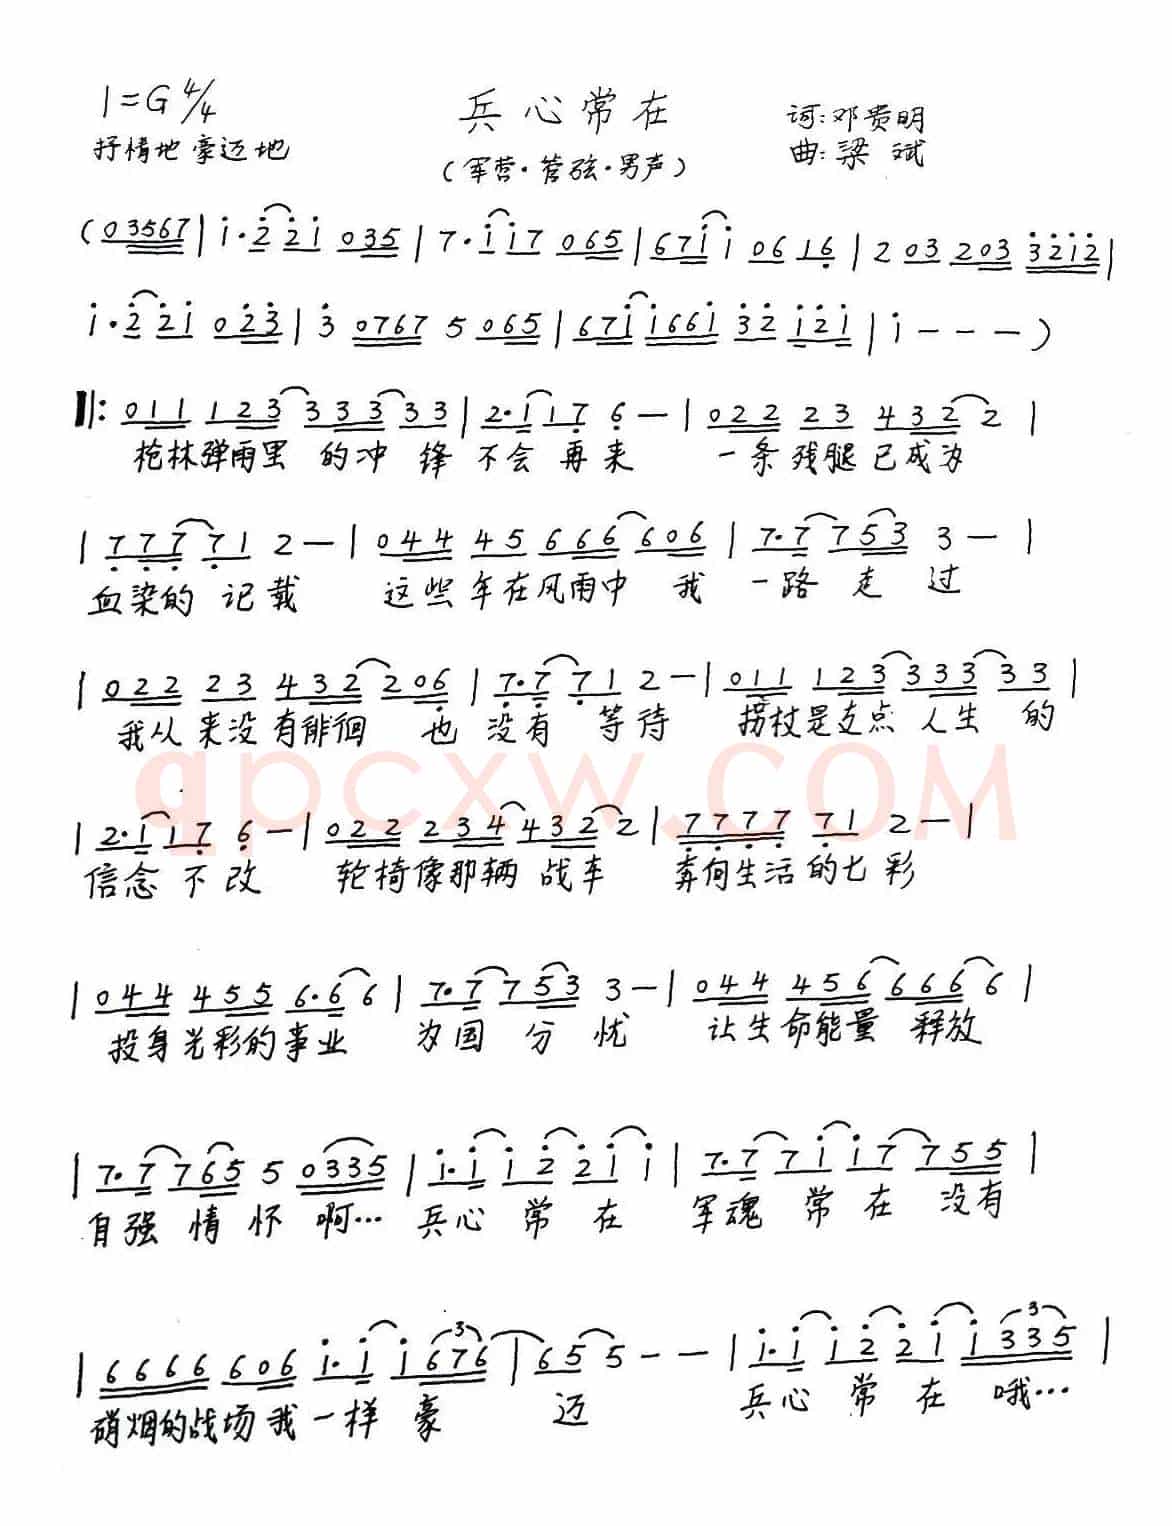 1=G 4/4
兵心常在
词:邓贵明
抒情地 豪迈地
(军营·管弦·男声)
曲:梁斌
(03567|i·2̇2̇i 035|7·ii7 065|67ii 0616|203 203 3̇2̇i2̇|
i·2̇2̇i 02̇3̇|3̇ 0767 5 065|67i i66i 3̇2̇ i2̇i|i---)
‖:011 123 333 33|2·117 6-|022 23 432 2|
枪林弹雨里 的冲 锋 不会 再来 一条残腿已成为
|777 71 2-|044 45 666 606|7·7 753 3-|
血染的 记载 这些年在风雨中 我 一路 走 过
|022 23 432 206|7·7 71 2-|011 123 333 33|
我从来没有徘徊 也 没有 等待 拐杖是支点 人生 的
|2·117 6-|022 234 432 2|7777 71 2-|
信念 不改 轮椅像那辆 战车 奔向生活的七彩
|044 455 6·6 6|7·7 753 3-|044 456 666 6|
投身光彩的事业 为国 分 忧 让生命能量 释放
|7·7 765 5 0335|i·i i2̇ 2̇i i|7·7 7i i7 755|
自强 情 怀 啊… 兵心 常 在 军魂 常 在 没有
|6666 606 i·i i676|65 5--|i·i i2̇ 2̇i i335|
硝烟的战场我一样 豪 迈 兵心 常 在 哦…
qpcxw.COM